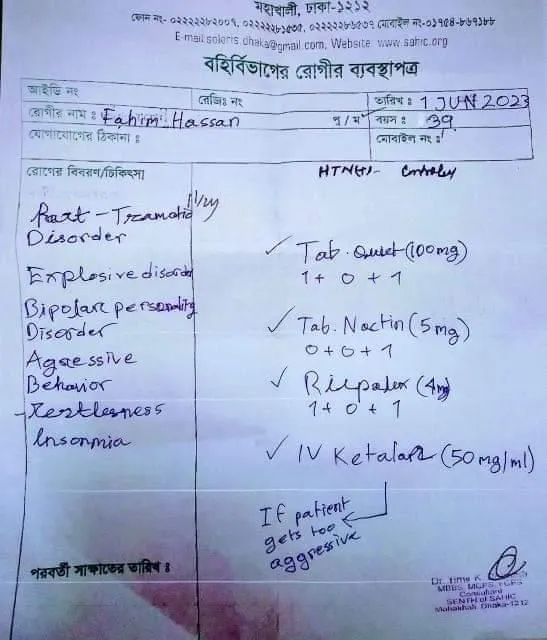 মহাখালী, ঢাকা-১২১২
ফোন নং- ০২২২২২৮২০০৭, ০২২২২২৮১৫৩৫, ০২২২২২৮৬৫৩৭ মোবাইল নং-০১৯৫৪-৮৬৭১৮৮
E-mail:soloris.dhaka@gmail.com, Website: www.sahic.org
বহির্বিভাগের রোগীর ব্যবস্থাপত্র
আইডি নং
রেজিঃ নং
তারিখ : 1 JUN 2023
রোগীর নাম : Fahim Hassan
পু / ম
বয়স : 39
যোগাযোগের ঠিকানা :
মোবাইল নং :
রোগের বিবরণ/চিকিৎসা
Post-Tramatic
Disorder
Explosive disorder
Bipolar personality
Disorder
Agressive
Behavior
-Restlesness
Insonmia
✓ Tab. Quiet (100mg)
1 + 0 + 1
✓ Tab. Noctin (5mg)
0 + 0 + 1
✓ (4mg)
1 + 0 + 1
✓ IV Ketalar (50 mg/ml)
If patient
gets too
aggressive
পরবর্তী সাক্ষাতের তারিখ :
Consultant
of SAHIC
Mohakhali, Dhaka-1212